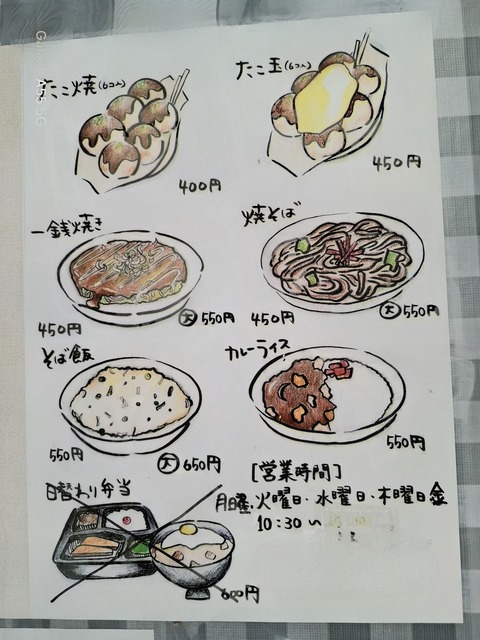 たこ焼(6コ入)
400円
たこ玉(6コ入)
450円
一銭焼き
450円
大 550円
焼そば
450円
大 550円
そば飯
550円
大 650円
カレーライス
550円
日替わり弁当
600円
[営業時間]
月曜日、火曜日・水曜日・木曜日 金
10:30〜